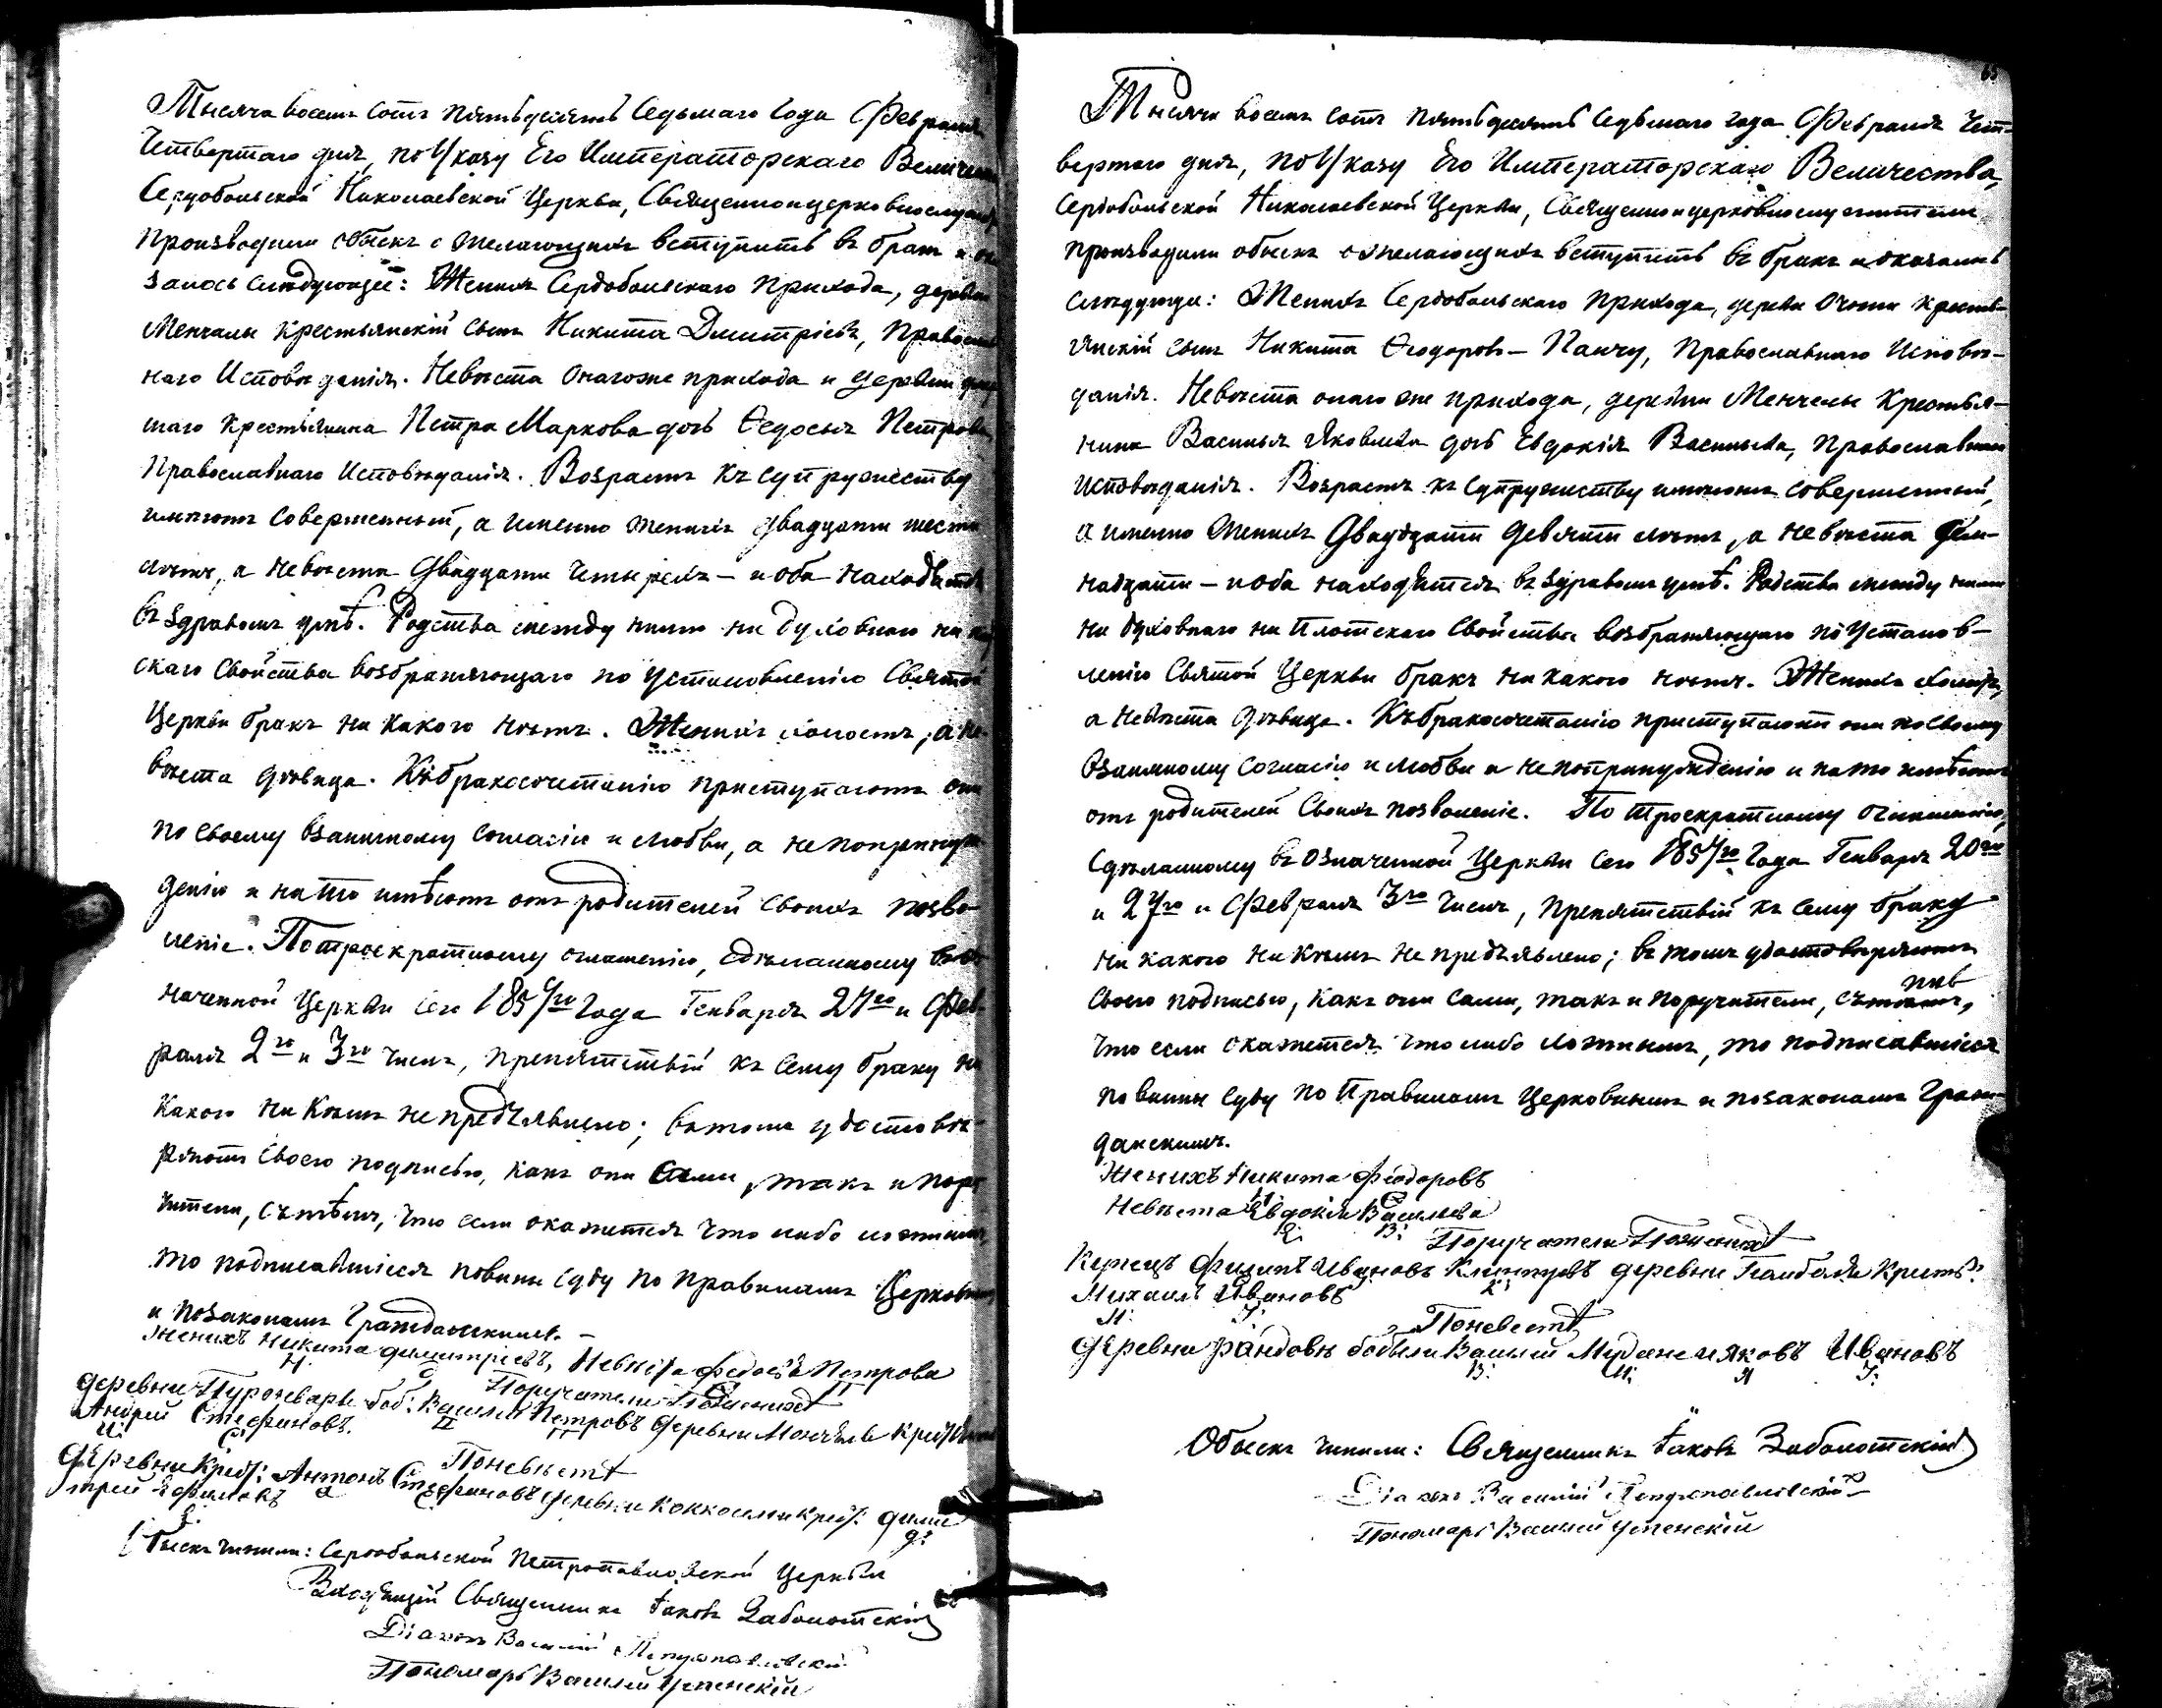 Тысяча восемь сотъ пятьдесятъ Седьмаго Года Февраля
Четвертаго дня, по Указу Его Императорскаго
Сердобольской Николаевской Церкви,
производили обыскъ о желающихъ вступить въ бракъ и
залось слѣдующее: Женихъ Сердобольскаго прихода,
Менчалы Крестьянскій сынъ Никита Дмитріевъ,
наго Исповѣданія. Невѣста онагоже прихода и деревни
шаго Крестьянина Петра Маркова дочь Ѳедосья Петрова,
Православнаго Исповѣданія. Возрастъ къ супружеству
имѣютъ совершенный, а именно женихъ двадцати шести
лѣтъ, а невѣста двадцати четырехъ – и оба находятся
въ здравомъ умѣ. Родства между ними ни духовнаго ни
скаго свойства возбраняющаго по установленію Святой
Церкви бракъ ни какого нѣтъ. Женихъ холостъ, а не-
вѣста дѣвица. Къ бракосочетанію приступаютъ они
по своему взаимному согласію и любви, а не по принуж-
денію и на то имѣютъ отъ родителей своихъ позво-
леніе. По троекратному оглашенію, сдѣланному
наченной Церкви сего 1857го Года Генваря 27го и Фев-
раля 2го и 3го числъ, препятствій къ сему браку ни
какого ни кѣмъ не предъявлено; въ томъ удостовѣ-
ряютъ своею подписью, какъ они сами, такъ и пору
чители, съ тѣмъ, что если окажется что либо ложнымъ,
то подписавшіеся повины суду по правиламъ Церковнымъ
и по законамъ Гражданскимъ. –
Женихъ Никита Димитріевъ, Невѣста Федосья Петрова
Поручатели По женихѣ
деревни боб: Василій Петровъ деревни
Андрей Стефановъ.
По невѣстѣ
деревни Крест: Антонъ Стефановъ деревни
трей
Обыскъ чинили: Сердобольской Петропавловской Церкви
Священникъ Іаковъ Заболотскій
Діаконъ Василій Петропавловскій
Пономарь Василій Успенскій
Тысяча восемь сотъ пятьдесятъ седьмаго года Февраля Чет-
вертаго дня, по Указу Его Императорскаго Величества,
Сердобольской Николаевской Церкви, Священно и церковнослужители
производили обыскъ о желающихъ вступить въ бракъ и оказалось
слѣдующе: Женихъ Сердобольскаго прихода, деревни Кресть-
янскій сынъ Никита Ѳеодоровъ – Панчу, Православнаго Исповѣ-
данія. Невѣста онаго же прихода, деревни Менчелы Крестья-
нина Василья Яковлева дочь Евдокія Васильева, Православнаго
исповѣданія. Возрастъ къ супружеству имѣютъ совершенный,
а именно Женихъ двадцати девяти лѣтъ, а невѣста
надцати – и оба находятся въ здравомъ умѣ. Родства между ними
ни духовнаго ни плотскаго свойства возбраняющаго по установ-
ленію Святой Церкви бракъ ни какого нѣтъ. Женихъ холостъ,
а невѣста дѣвица. Къ бракосочетанію приступаютъ они по своему
взаимному согласію и любви а не по принужденію и на то имѣютъ
отъ родителей своихъ позволеніе. По троекратному оглашенію,
сдѣланному въ означенной Церкви сего 1857го Года Генваря 20го
и 27го и Февраля 3го числъ, препятствій къ сему браку
ни какого ни кѣмъ не предъявлено; въ томъ удостовѣряютъ
своею подписью, какъ они сами, такъ и поручители, съ тѣмъ,
что если окажется что либо ложнымъ, то подписавшіеся
повины суду по Правиламъ Церковнымъ и по законамъ Граж-
данскимъ.
Женихъ Никита Феодоровъ
Невѣста Евдокія Васильева
Поручатели По женихѣ
Филипъ Ивановъ деревни Крестъ:
Михаилъ Ивановъ
По невестѣ
деревни бобыли Василій и Яковъ Ивановъ
Обыскъ чинили: Священникъ Іаковъ Заболотскій
Діаконъ Василій Петропавловскій
Пономарь Василій Успенскій